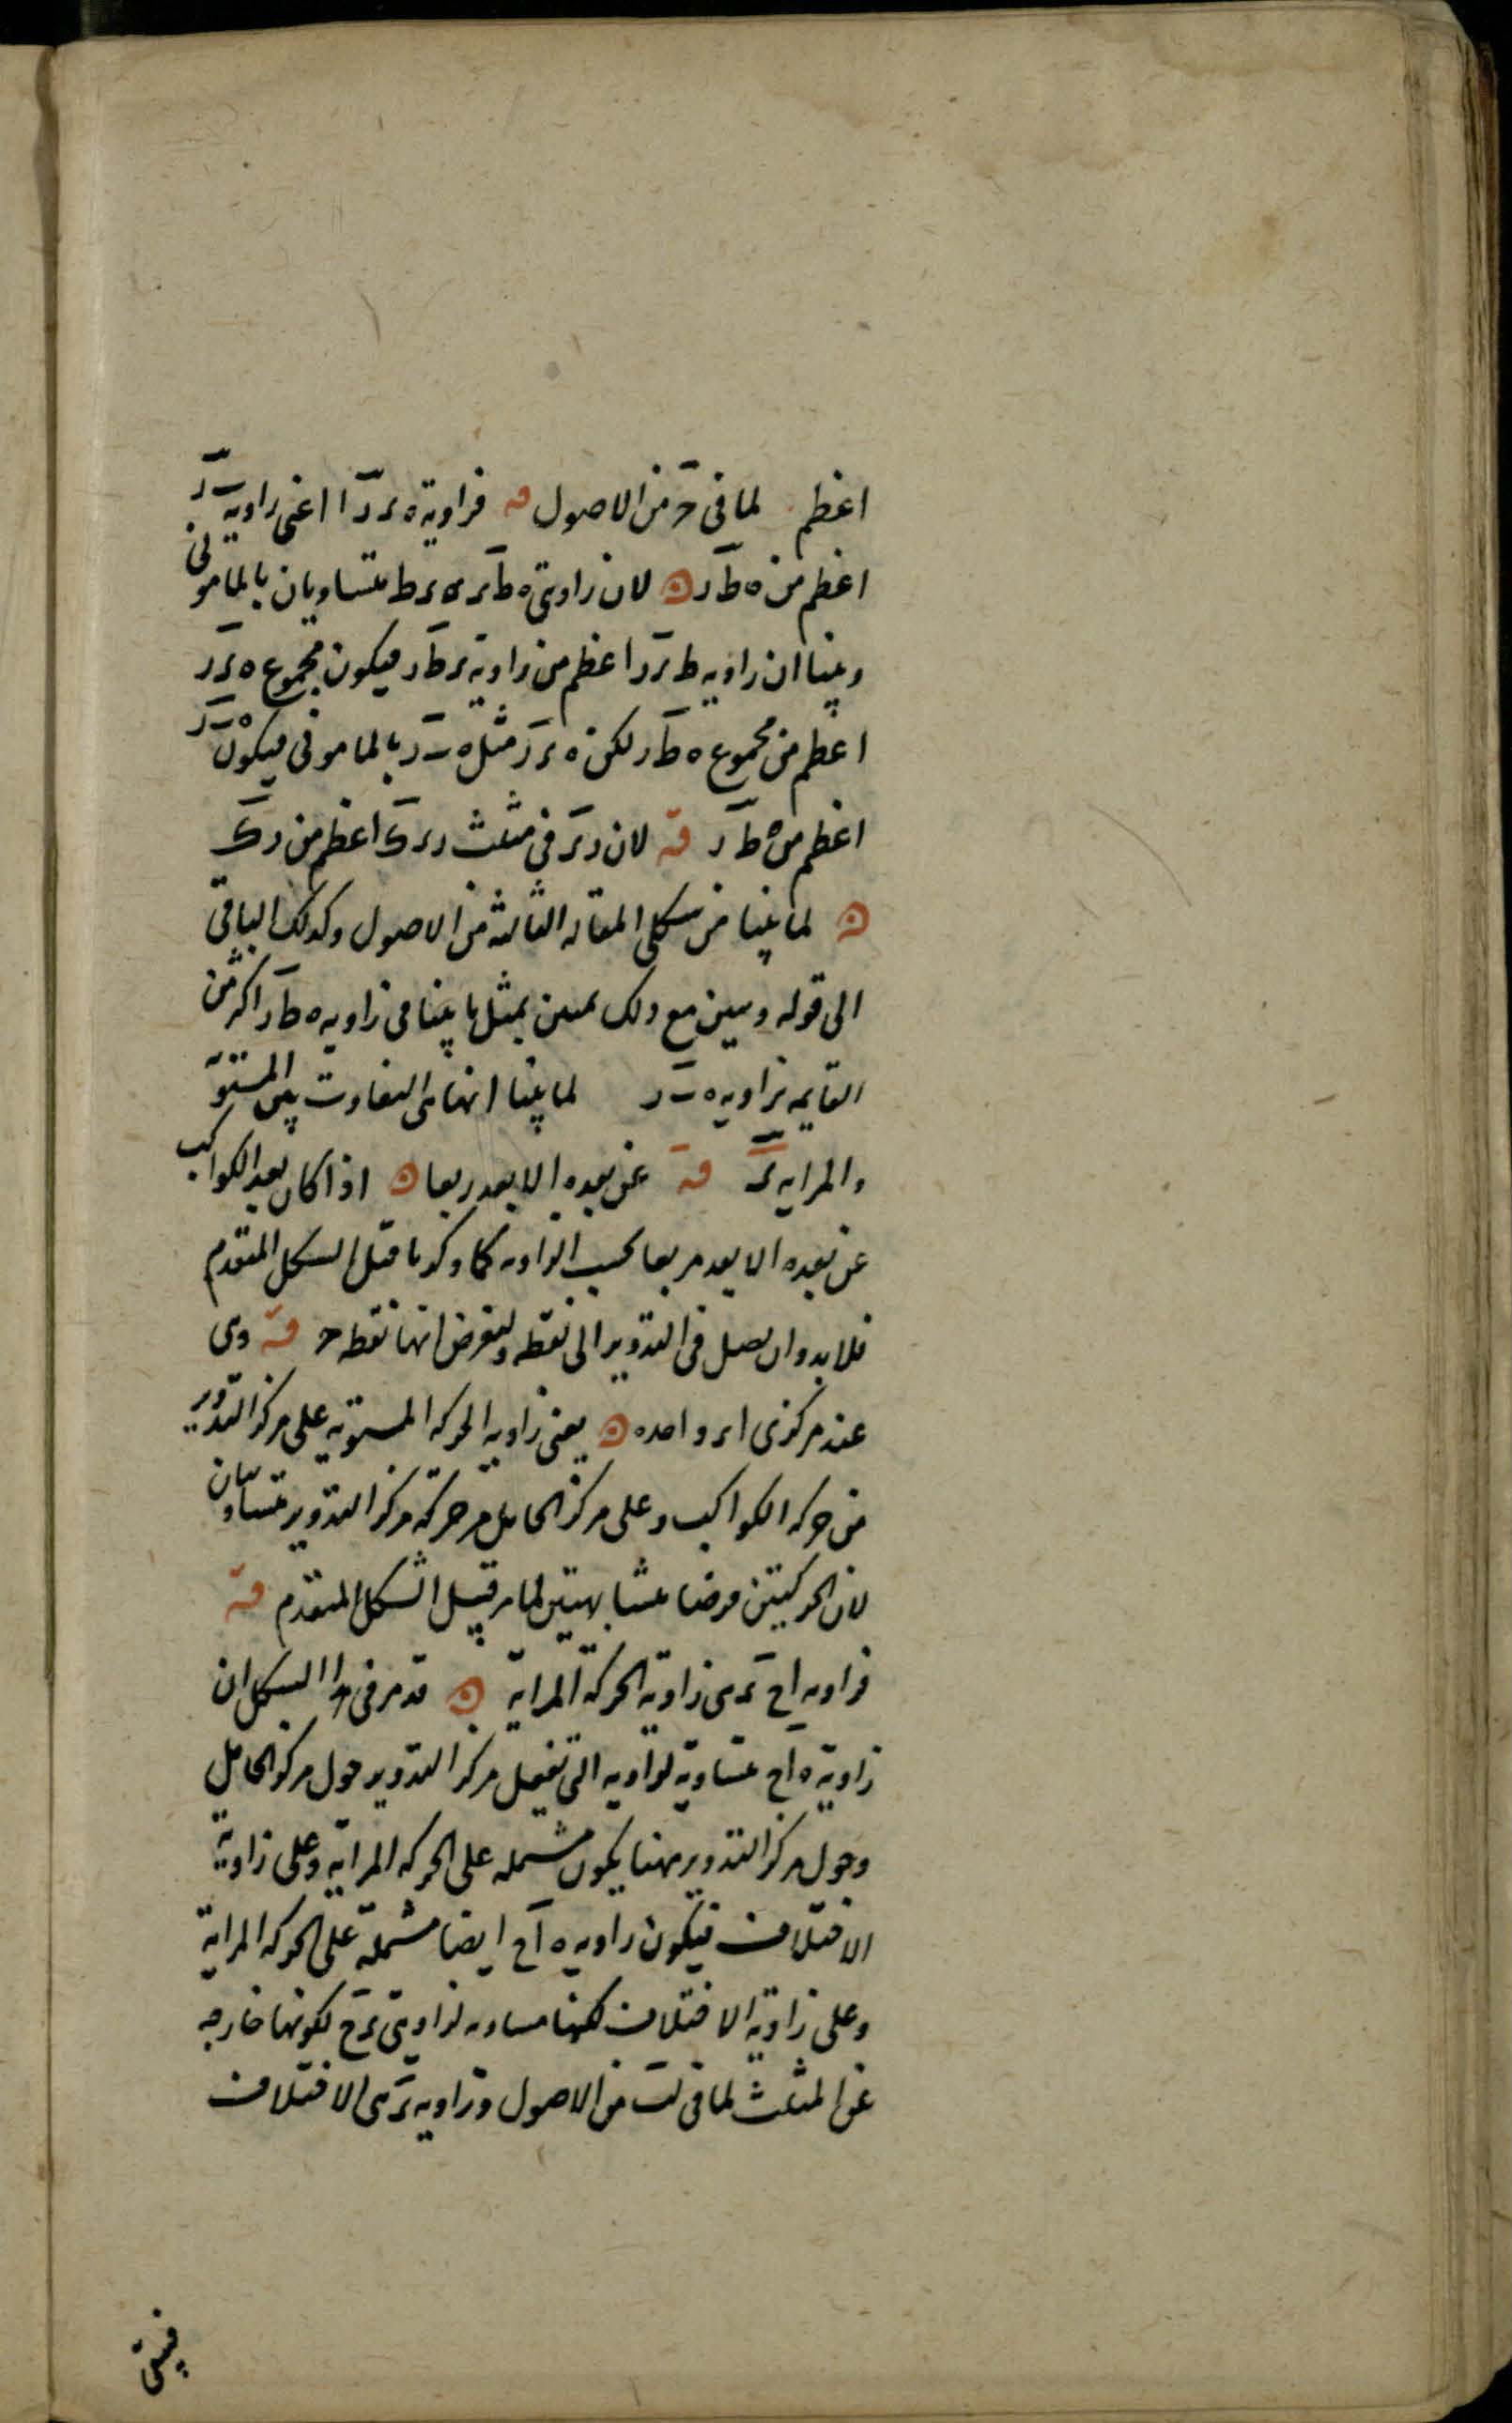 اعظم لما فى من الاصول فزاوية ه ر د اعنى زاوية
اعظم من ه ط د لان زاويتى ه ط ر ه ر ط متساويان بالمامونى
وبينا ان زاويه ط ر د اعظم من زاوية ر ط د فيكون مجموع ه ر د
اعظم من مجموع ه ط د لكن ه ر د مثل ه ب د بالمامونى فيكون
اعظم من ه ط د قه لان د ر فى مثلث د ر ك اعظم من د ك
لما بينا من شكلى المقاله الثالثة من الاصول وكذلك الباقى
الى قوله وتبين مع ذلك بمثل ما بينا من زاويه ه ط د اكثر من
القايمه بزاويه ه ب د لما بينا انها هى التفاوت بين المستويه
والمرايه قه عن بعده الابعد ربعا اذا كان بعد الكواكب
عن بعده الابعد ربعا بحسب الزاويه كما ذكرنا قبل الشكل المتقدم
فلا بد وان يصل فى التدوير الى نقطه ولنفرض انها نقطه ح قه وهى
عند مركزى ا ر واحده يعنى زاوية الحركه المستويه على مركز التدوير
من حركه الكواكب وعلى مركز الحامل من حركة مركز التدوير متساويان
لان الحركتين فرضنا متشابهتين لما مر قبيل الشكل المتقدم قه
فزاويه ا ح ر هى زاوية الحركة المرايه قد مر فى الشكل ان
زاوية ه ا ح متساوية لزاويه التى تفعل مركز التدوير حول مركز الحامل
وحول مركز التدوير ههنا يكون مشتمله على الحركه المرايه وعلى زاوية
الاختلاف فيكون زاويه ه ا ح ايضا مشتملة على الحركه المراية
وعلى زاوية الاختلاف لكنها مساويه لزاويتى ر ح لكونها خارجه
عن المثلث لما فى لب من الاصول وزاويه ر هى الاختلاف
فيبقى